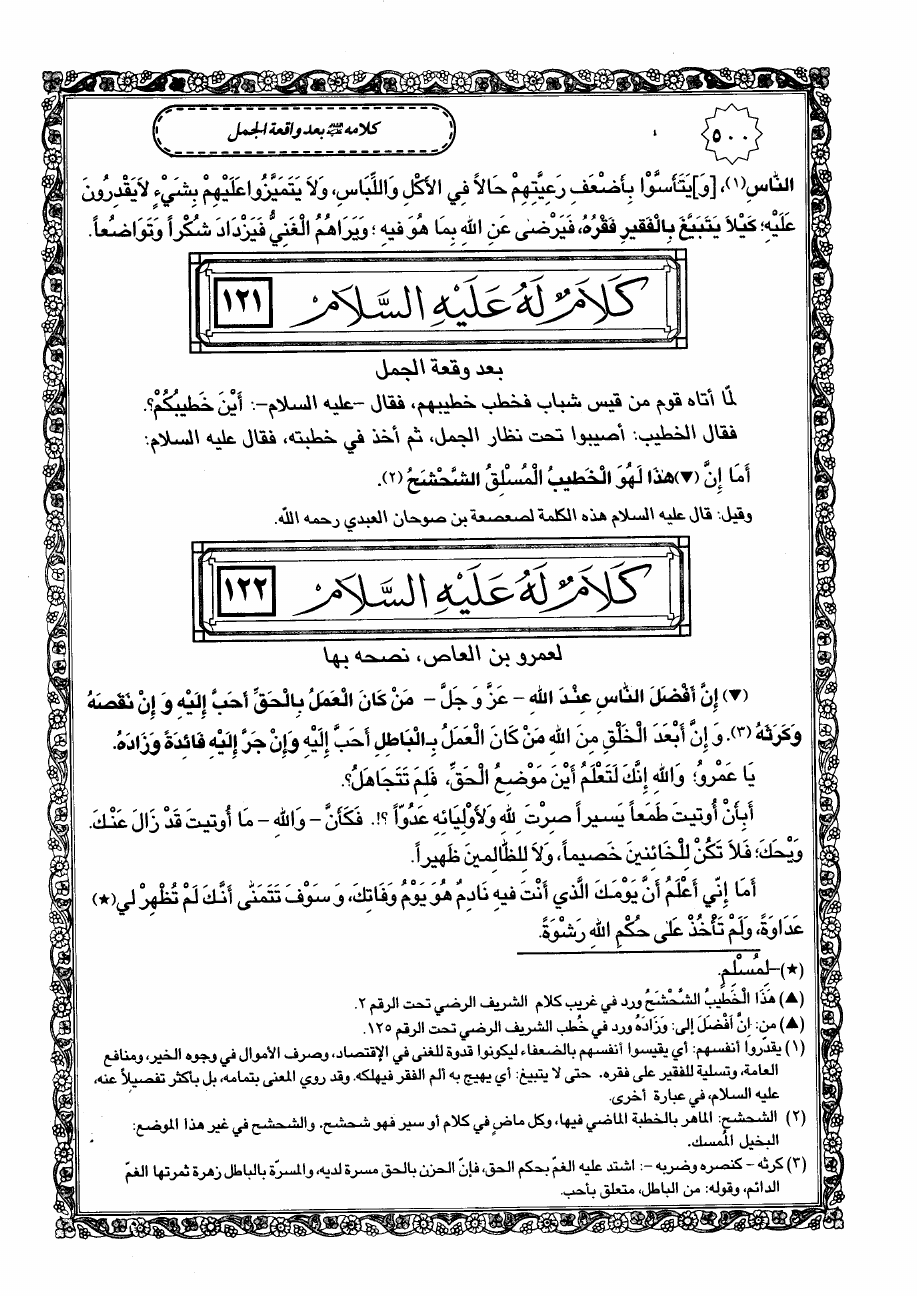 ٥٠٠
كلامه عليه السلام بعد واقعة الجمل
النَّاسِ(١)، [وَ]يَتَأَسَّوْا بِأَضْعَفِ رَعِيَّتِهِمْ حَالاً فِي الأَكْلِ وَاللِّبَاسِ، وَلاَ يَتَمَيَّزُوا عَلَيْهِمْ بِشَيْءٍ لاَيَقْدِرُونَ
عَلَيْهِ؛ كَيْلاَ يَتَبَيَّغَ بِالْفَقيرِ فَقْرُهُ، فَيَرْضى عَنِ اللهِ بِمَا هُوَ فيهِ ؛ وَيَرَاهُمُ الْغَنِيُّ فَيَزْدَادَ شُكْراً وَتَوَاضُعاً.
كَلَامٌ لَهُ عَلَيْهِ السَّلَامُ
١٢١
بعد وقعة الجمل
لمّا أتاه قوم من قيس شباب فخطب خطيبهم، فقال -عليه السلام-: أَيْنَ خَطيبُكُمْ؟.
فقال الخطيب: أصيبوا تحت نظار الجمل، ثم أخذ في خطبته، فقال عليه السلام:
أَمَا إِنَّ (▼)هٰذَا لَهُوَ الْخَطيبُ الْمُسْلِقُ الشَّحْشَحُ (٢).
وقيل: قال عليه السلام هذه الكلمة لصعصعة بن صوحان العبدي رحمه الله.
كَلَامٌ لَهُ عَلَيْهِ السَّلَامُ
١٢٢
لعمرو بن العاص، نصحه بها
(▼) إِنَّ أَفْضَلَ النَّاسِ عِنْدَ اللهِ - عَزَّ وَ جَلَّ - مَنْ كَانَ الْعَمَلُ بِالْحَقِّ أَحَبَّ إِلَيْهِ وَ إِنْ نَقَصَهُ
وَكَرَثَهُ (٣). وَ إِنَّ أَبْعَدَ الْخَلْقِ مِنَ اللهِ مَنْ كَانَ الْعَمَلُ بِالْبَاطِلِ أَحَبَّ إِلَيْهِ وَإِنْ جَرَّ إِلَيْهِ فَائِدَةً وَزَادَهُ.
يَا عَمْرُو؛ وَاللهِ إِنَّكَ لَتَعْلَمُ أَيْنَ مَوْضِعُ الْحَقِّ، فَلِمَ تَتَجَاهَلُ؟.
أَبِأَنْ أُوتيتَ طَمَعاً يَسيراً صِرْتَ لِلهِ وَلأَوْلِيَائِهِ عَدُوّاً ؟!. فَكَأَنَّ - وَاللهِ - مَا أُوتيتَ قَدْ زَالَ عَنْكَ.
وَيْحَكَ؛ فَلاَ تَكُنْ لِلْخَائِنينَ خَصيماً، وَلاَ لِلظَّالِمينَ ظَهيراً.
أَمَا إِنّي أَعْلَمُ أَنَّ يَوْمَكَ الَّذي أَنْتَ فيهِ نَادِمٌ هُوَ يَوْمُ وَفَاتِكَ، وَ سَوْفَ تَتَمَنَّى أَنَّكَ لَمْ تُظْهِرْ لي(★)
عَدَاوَةً، وَلَمْ تَأْخُذْ عَلَى حُكْمِ اللهِ رَشْوَةً.
(★)-لِمُسْلِمٍ.
(▲) هَذَا الْخَطيبُ الشَّحْشَحُ ورد في غريب كلام الشريف الرضي تحت الرقم ٢.
(▲) من: إِنَّ أَفْضَلَ إلى: وَزَادَهُ ورد في خُطب الشريف الرضي تحت الرقم ١٢٥.
(١) يقدّروا أنفسهم: أي يقيسوا أنفسهم بالضعفاء ليكونوا قدوة للغنى في الإقتصاد، وصرف الأموال في وجوه الخير، ومنافع
العامة، وتسلية للفقير على فقره. حتى لا يتبيغ: أي يهيج به ألم الفقر فيهلكه. وقد روي المعنى بتمامه، بل بأكثر تفصيلاً عنه،
عليه السلام، في عبارة أخرى.
(٢) الشحشح: الماهر بالخطبة الماضي فيها، وكل ماضٍ في كلام أو سير فهو شحشح. والشحشح في غير هذا الموضع:
البخيل المُمسك.
(٣) كرثه - كنصره وضربه -: اشتد عليه الغمّ بحكم الحق، فإنّ الحزن بالحق مسرة لديه، والمسرّة بالباطل زهرة ثمرتها الغمّ
الدائم، وقوله: من الباطل، متعلق بأحب.